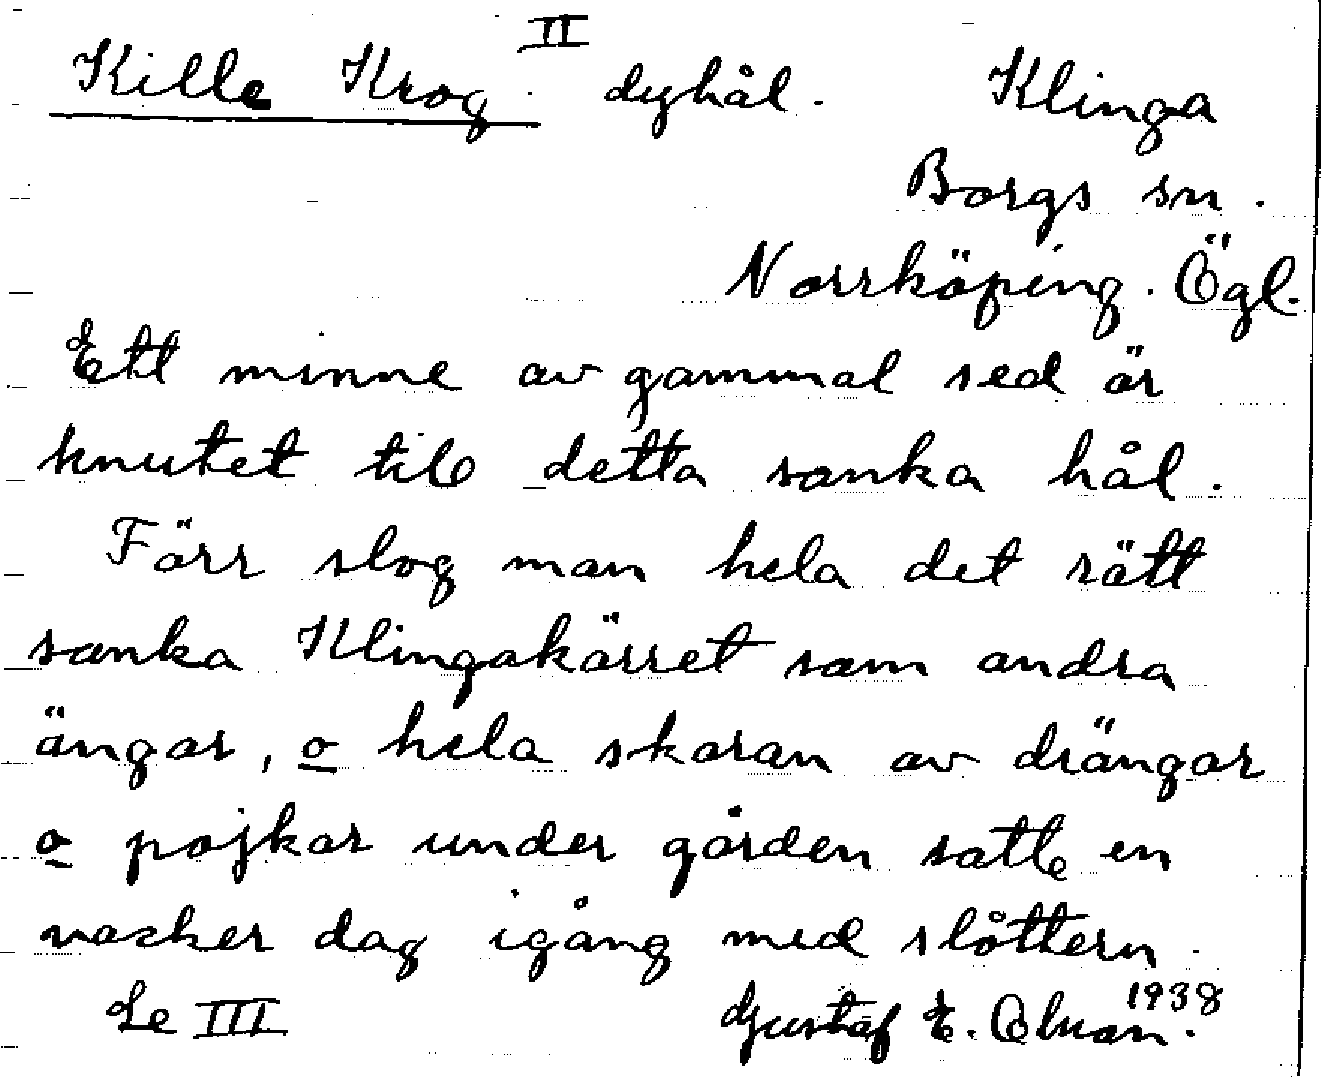 Kille Krog II dyhål. Klinga
Borgs sn.
Norrköping. Ögl.
Ett minne av gammal sed är
knutet till detta sanka hål.
Förr slog man hela det rätt
sanka Klingakärret som andra
ängar, o hela skaran av drängar
o pojkar under gården satte en
vacker dag igång med slåttern.
Se III Gustaf E.
1938